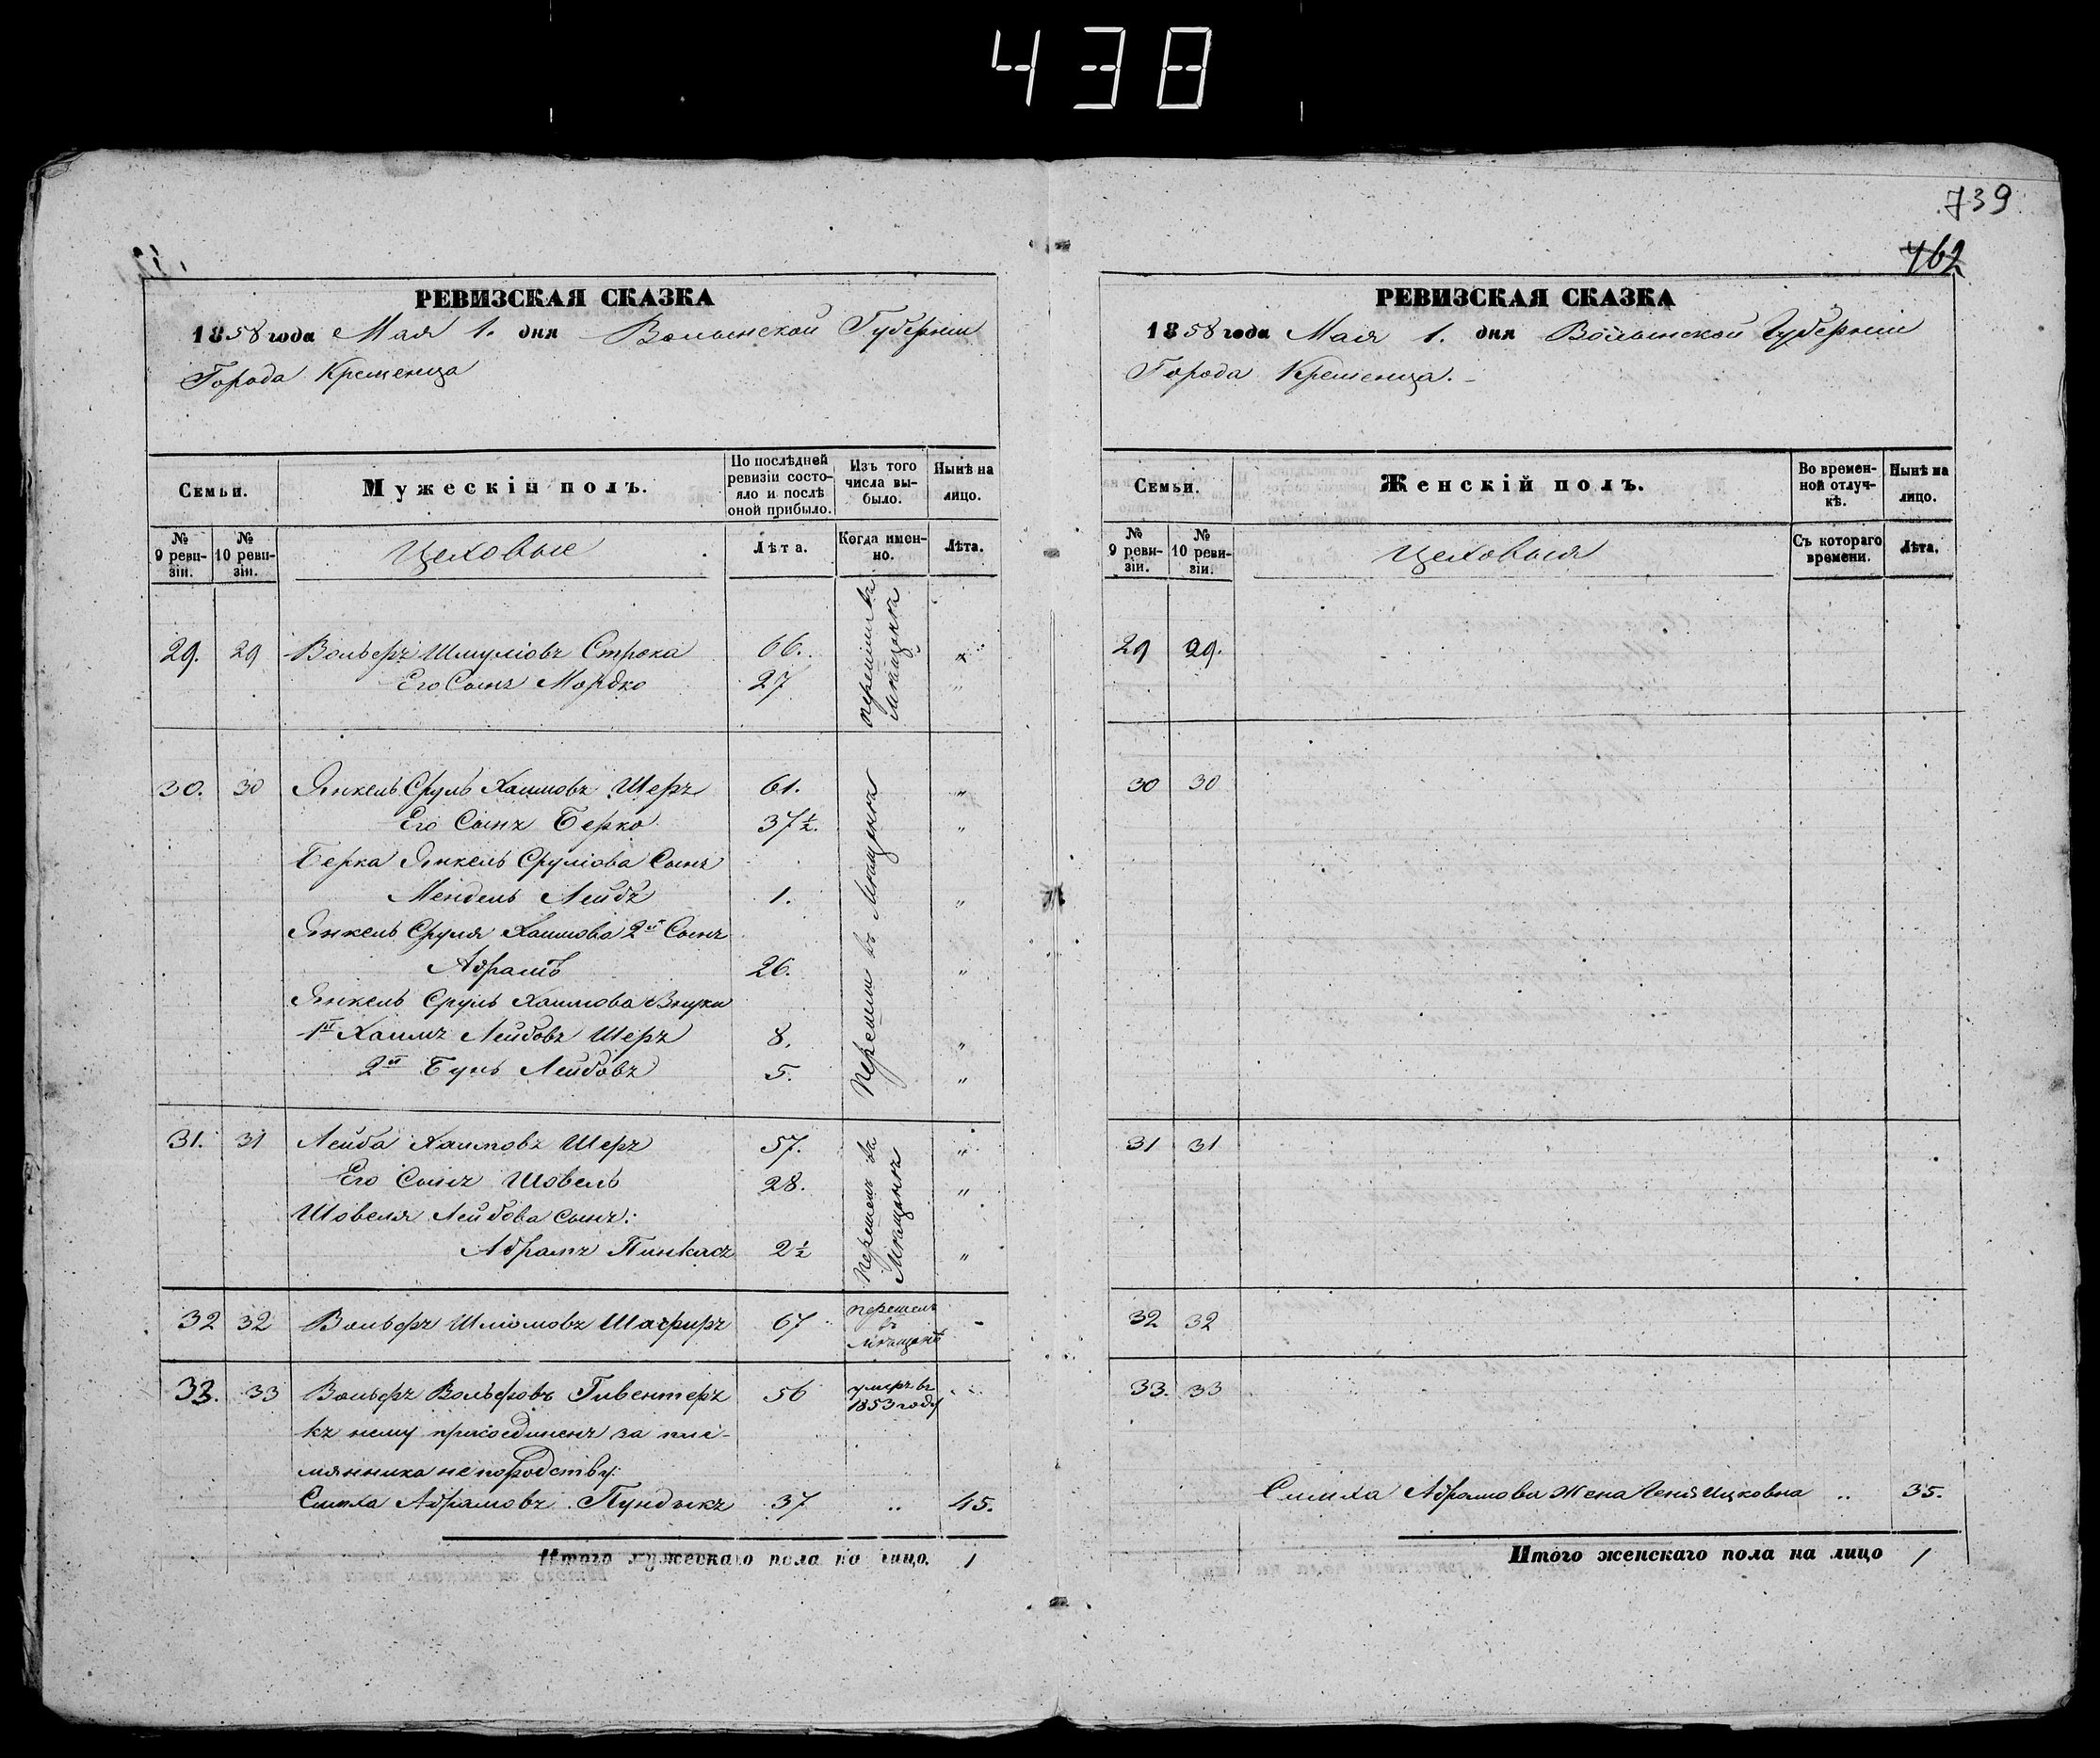 438
739
462
РЕВИЗСКАЯ СКАЗКА
1858 года Мая 1. дня Волынской Губерніи
Города Кременца
Семьи.
Мужескій полъ.
По послѣдней ревизіи состояло и послѣ оной прибыло.
Изъ того числа выбыло.
Нынѣ на лицо.
№ 9 ревизіи.
№ 10 ревизіи.
Цеховые
Лѣта.
Когда именно.
Лѣта.
29. 29 Вольфъ Шмуліовъ Строка 66. перешли въ мѣщане „
Его Сынъ Мордко 27 „
30. 30 Янкель Сруль Хаимовъ Шеръ 61. Перешли въ Мѣщане „
Его Сынъ Берко 37½. „
Берка Янкель Сруліова Сынъ
Мендель Лейбъ 1. „
Янкель Сруля Хаимова 2й Сынъ
Абрамъ 26. „
Янкель Сруль Хаимова Внуки
1й Хаимъ Лейбовъ Шеръ 8. „
2й Буль Лейбовъ 5. „
31. 31 Лейба Хаимовъ Шеръ 57. перешли въ Мѣщане „
Его Сынъ Шовель 28. „
Шовеля Лейбова сынъ:
Абрамъ Пинкасъ 2½ „
32 32 Вольфъ Шліомовъ Шафиръ 67 перешелъ въ мѣщане -
33. 33 Вольфъ Вольфовъ Гивентеръ 56 умеръ въ 1853 году „
къ нему присоединенъ за пле-
мянника не по родству:
Симха Абрамовъ Пундыкъ 37 „ 45.
Итого мужескаго пола на лицо. 1
РЕВИЗСКАЯ СКАЗКА
1858 года Мая 1. дня Волынской Губерніи
Города Кременца.-
Семьи.
Женскій полъ.
Во временной отлучкѣ.
Нынѣ на лицо.
№ 9 ревизіи.
№ 10 ревизіи.
Цеховыя
Съ котораго времени.
Лѣта.
29 29.
30 30
31 31
32 32
33. 33
Симха Абрамова Жена Геня Ицковна „ 35.
Итого женскаго пола на лицо 1